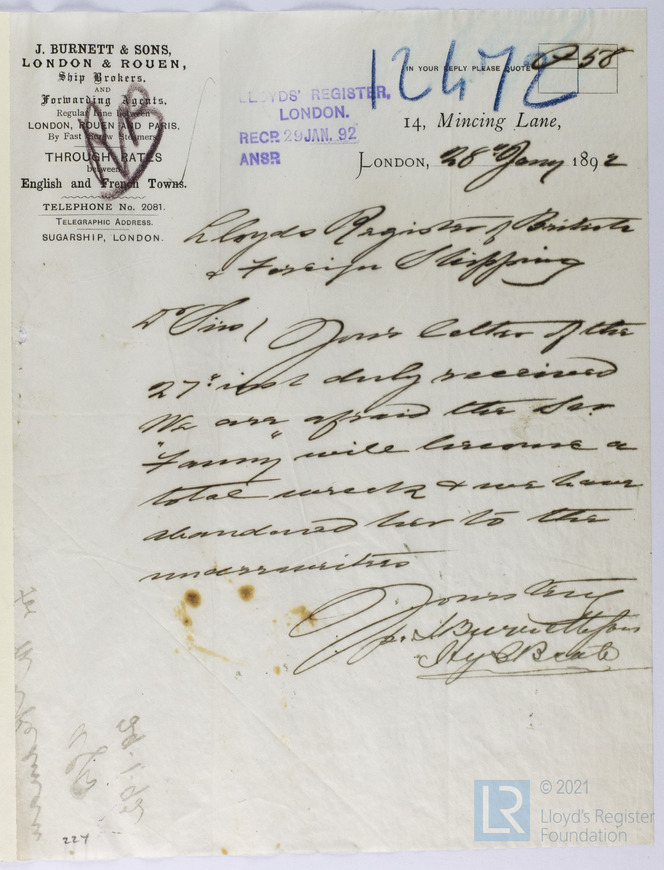 J. BURNETT & SONS,
LONDON & ROUEN,
Ship Brokers,
AND
Forwarding Agents.
Regular Line between
LONDON, ROUEN AND PARIS,
By Fast Screw Steamers
THROUGH RATES
between
English and French Towns.
TELEPHONE No. 2081.
TELEGRAPHIC ADDRESS.
SUGARSHIP, LONDON.
LLOYDS' REGISTER,
LONDON.
RECP. 29 JAN. 92
ANSR
12472
IN YOUR REPLY PLEASE QUOTE
58
14, Mincing Lane,
LONDON, 28th Jany 1892
Lloyds Register of British
& Foreign Shipping
Dr Sirs/ Your letter of the
27th inst duly received
We are afraid the Str.
"Fanny" will become a
total wreck & we have
abandoned her to the
underwriters
Yours truly
pp. J Burnett & Sons
224
© 2021
LR
Lloyd's Register
Foundation